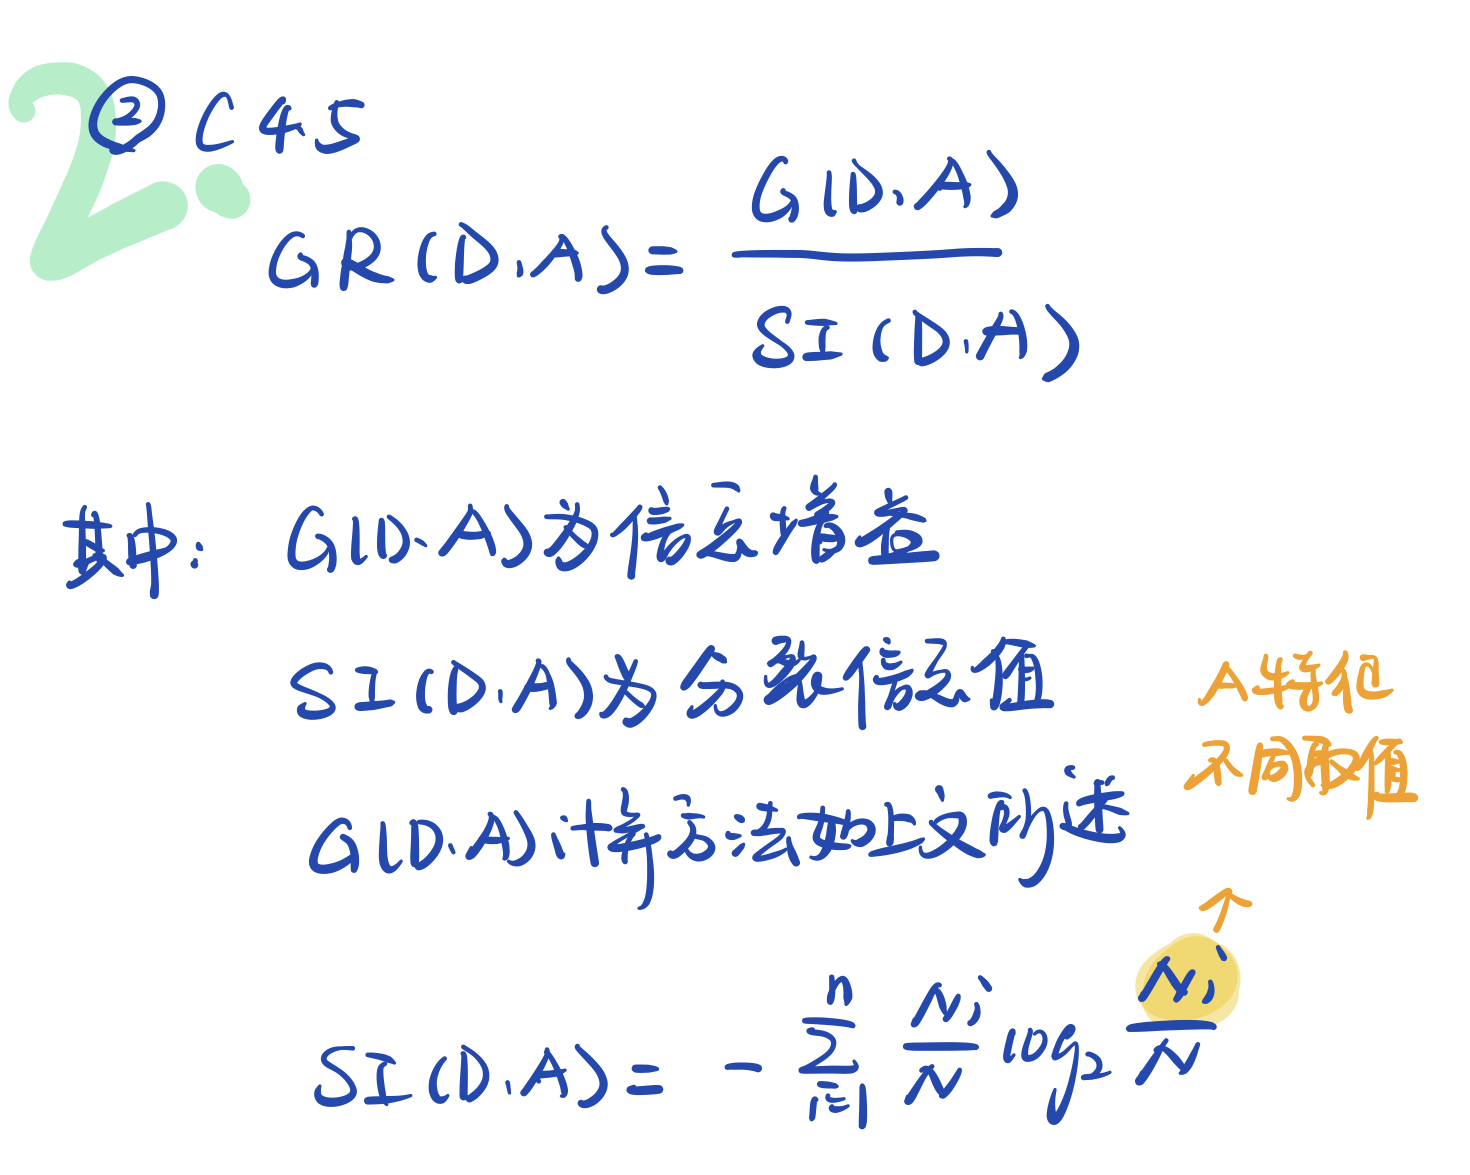 2.
② C45
GR(D,A) = G(D,A) / SI(D,A)
其中: G(D,A)为信息增益
SI(D,A)为分裂信息值
A特征
不同取值
G(D,A)计算方法如上文所述
↑
SI(D,A) = - ∑_{i=1}^{n} Ni/N log₂ Ni/N